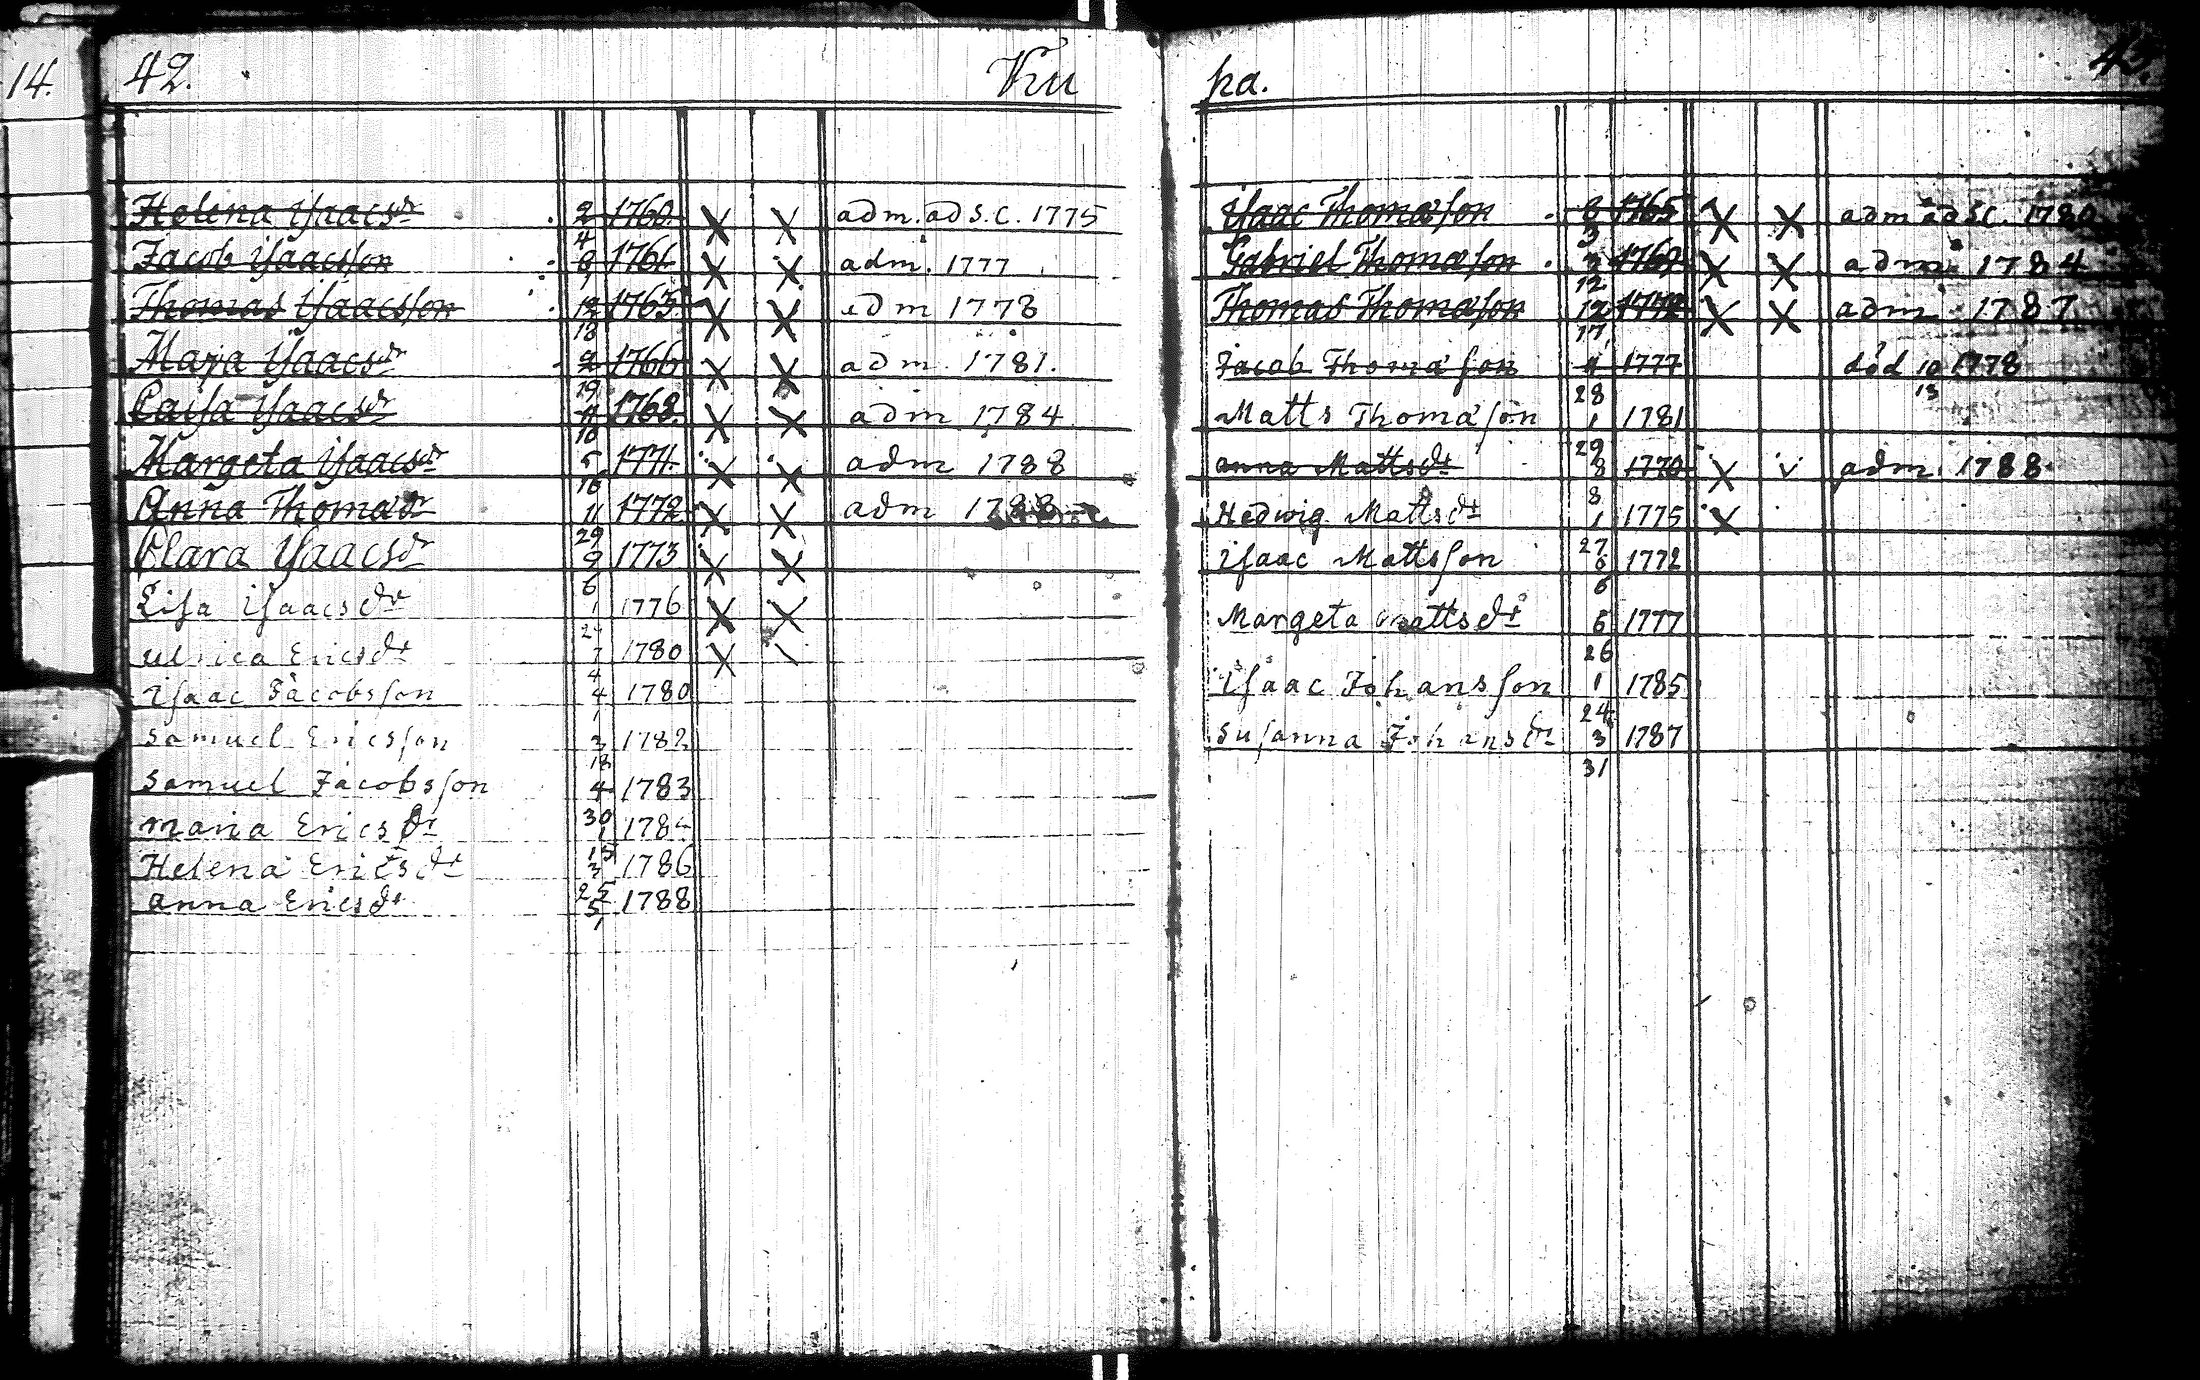 14.
42. Ku
Helena Isaacsdr 2/4 1760. X X adm. ad S.C. 1775
Jacob Isaacsson 1761 X X adm. 1777
Thomas Isaacsson 12/18 1763 X X adm 1778
Maja Isaacsdr 2/19 1766 X X adm. 1781.
Caisa Isaacsdr 11/10 1768. X X adm 1784
Margeta Isaacsdr 5/16 1771. X X adm 1788
Anna Thomædr 11/29 1772. X X adm 1788
Clara Isaacsdr 9/6 1773 X X
Lisa Isaacsdr 1/24 1776 X X
Ulrica Ericsdr 7/4 1780 X
Isaac Jacobsson 4/1 1780
Samuel Ericsson 3/18 1782
Samuel Jacobsson 4/30 1783
Maria Ericsdr 1/15 1784
Helena Ericsdr 3/25 1786
Anna Ericsdr 5/1 1788
pa. 43.
Isaac Thomæson 8/3 1765 X X adm ad S.C. 1780
Gabriel Thomæson 1769 X X adm 1784
Thomas Thomæson 12/17 1772 X X adm 1787
Jacob Thomæson 11/28 1777 död 10/13 1778
Matts Thomæson 1/29 1781
Anna Mattsdr 8/8 1770 X v adm. 1788
Hedwig Mattsdr 1/27 1775 X
Isaac Mattsson 6/6 1772
Margeta Mattsdr 6/26 1777
Isaac Johansson 1/24 1785
Susanna Johansdr 3/31 1787